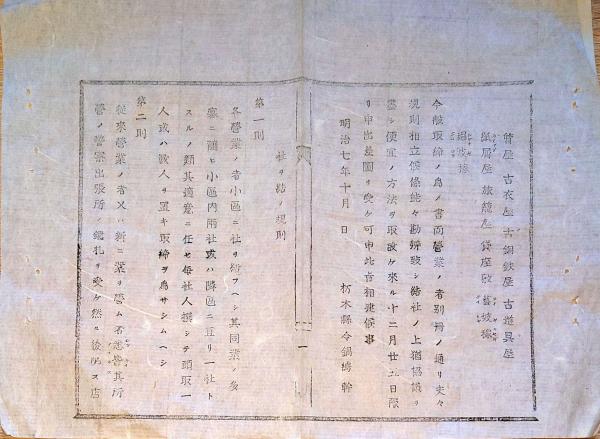 質屋 古衣屋 古銅鉄屋 古道具屋
紙屑屋 旅籠屋 貸座敷 藝妓稼
娼妓稼
今般取締ノ為ノ書面營業ノ者別冊ノ通リ夫々
規則相立候條能々勘辨致シ結社ノ上猶協議ヲ
盡シ便宜ノ方法ヲ取設ケ來ル十二月廿五日限
リ申出差圖ヲ受ケ可申此旨相達候事
明治七年十月 日 栃木縣令鍋島幹
一
社ヲ結ノ規則
第一則
各營業ノ者小區ニ社ヲ結フヘシ其同業ノ多
寡ニ隨ヒ小區内兩社或ハ隣區ニ亘リ一社ト
スルノ類其適意ニ任セ每社人撰シテ頭取一
人或ハ數人ヲ置キ取締ヲ為サシムヘシ
第二則
從來營業ノ者又ハ新ニ業ヲ營ム者悉皆其所
管ノ警察出張所ノ鑑札ヲ受ケ然ル後チニ店